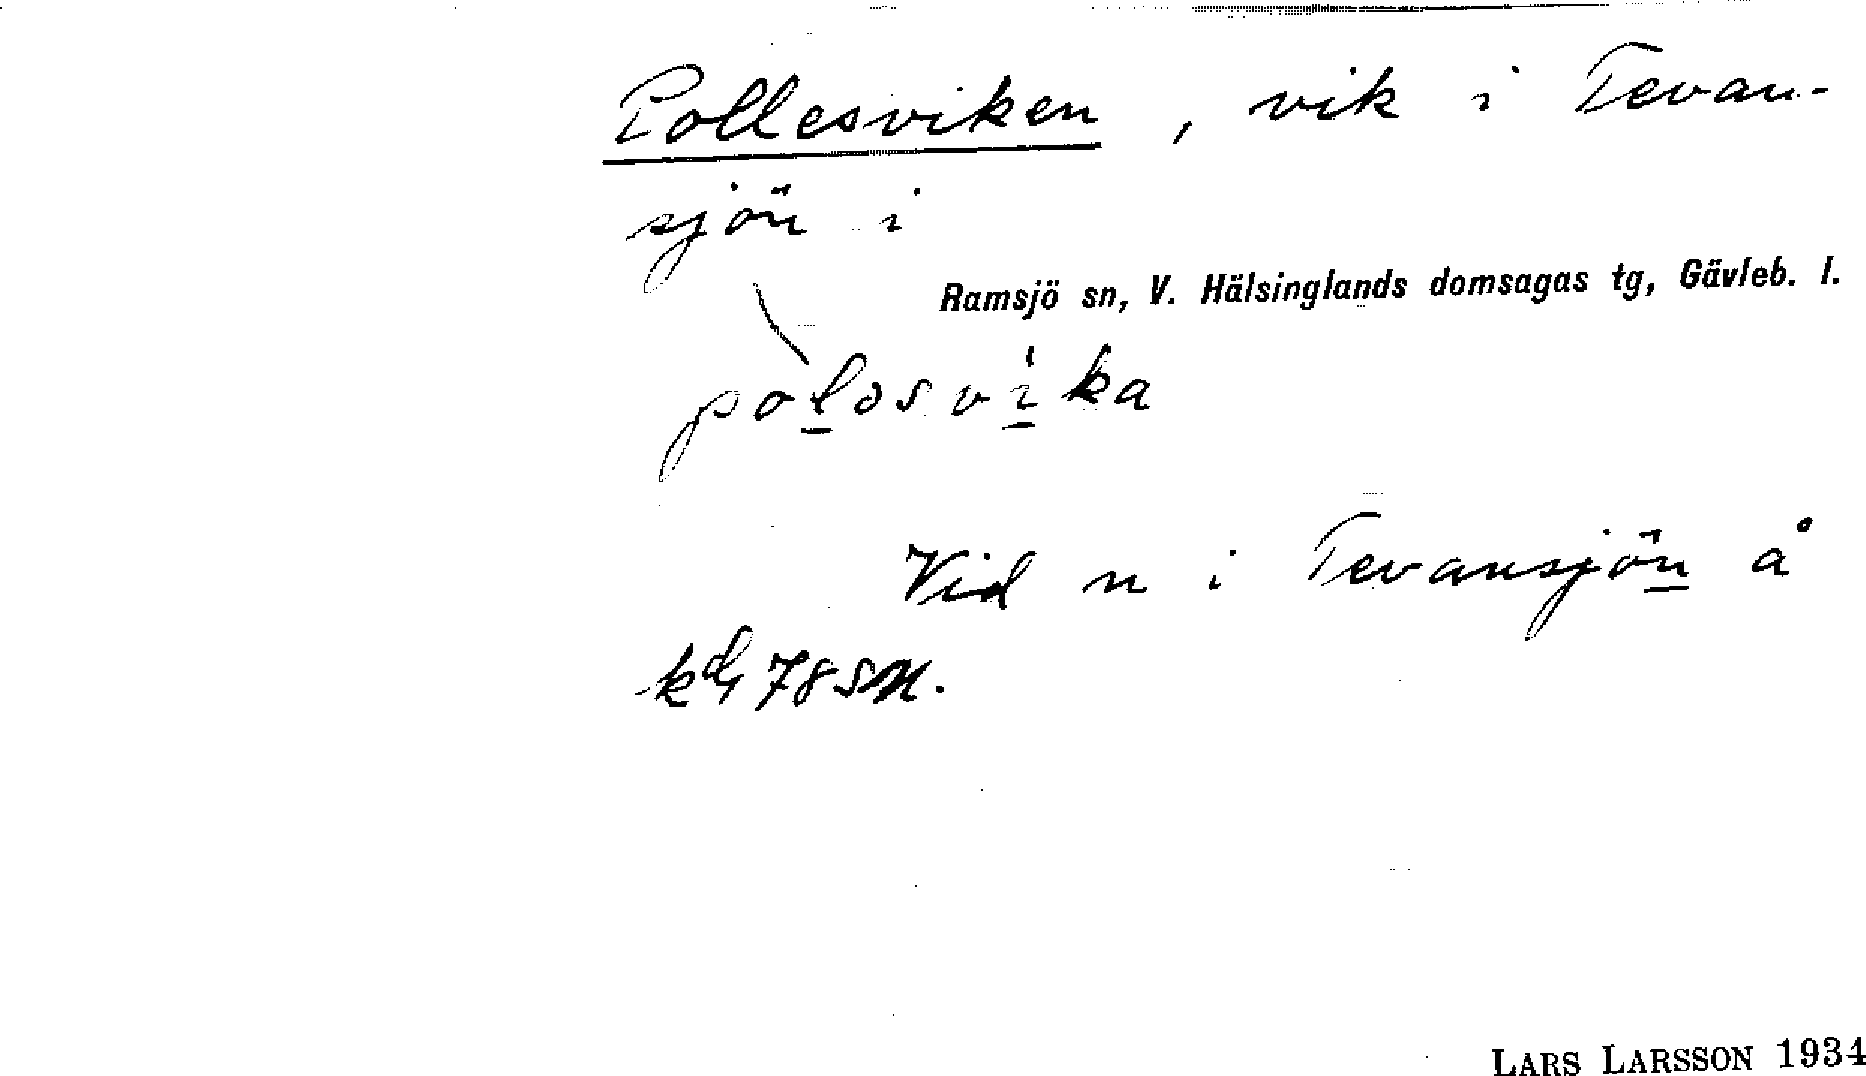 Pollesviken, vik i Tevan-
sjön i
Ramsjö sn, V. Hälsinglands domsagas tg, Gävleb. l.
polosvika
Vid n i Tevansjön å
78 SN.
LARS LARSSON 1934